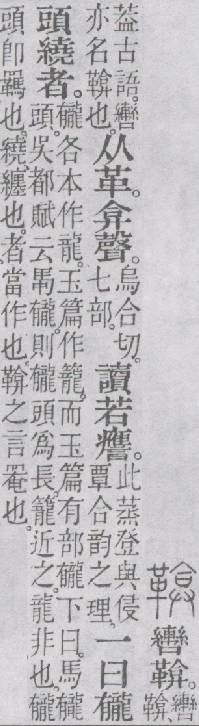 鞥 轡鞥。轡鞥
葢古語。轡亦名鞥也。从革。弇聲。烏合切。七部。讀若譍。此蒸登與侵覃合韵之理。一曰龓
頭繞者。龓各本作龍。玉篇作籠。而玉篇有部龓下曰。馬龓頭。吳都賦云馽龓。則龓頭爲長。籠近之。龍非也。龓
頭卽羈也。繞。纏也。者當作也。鞥之言罨也。